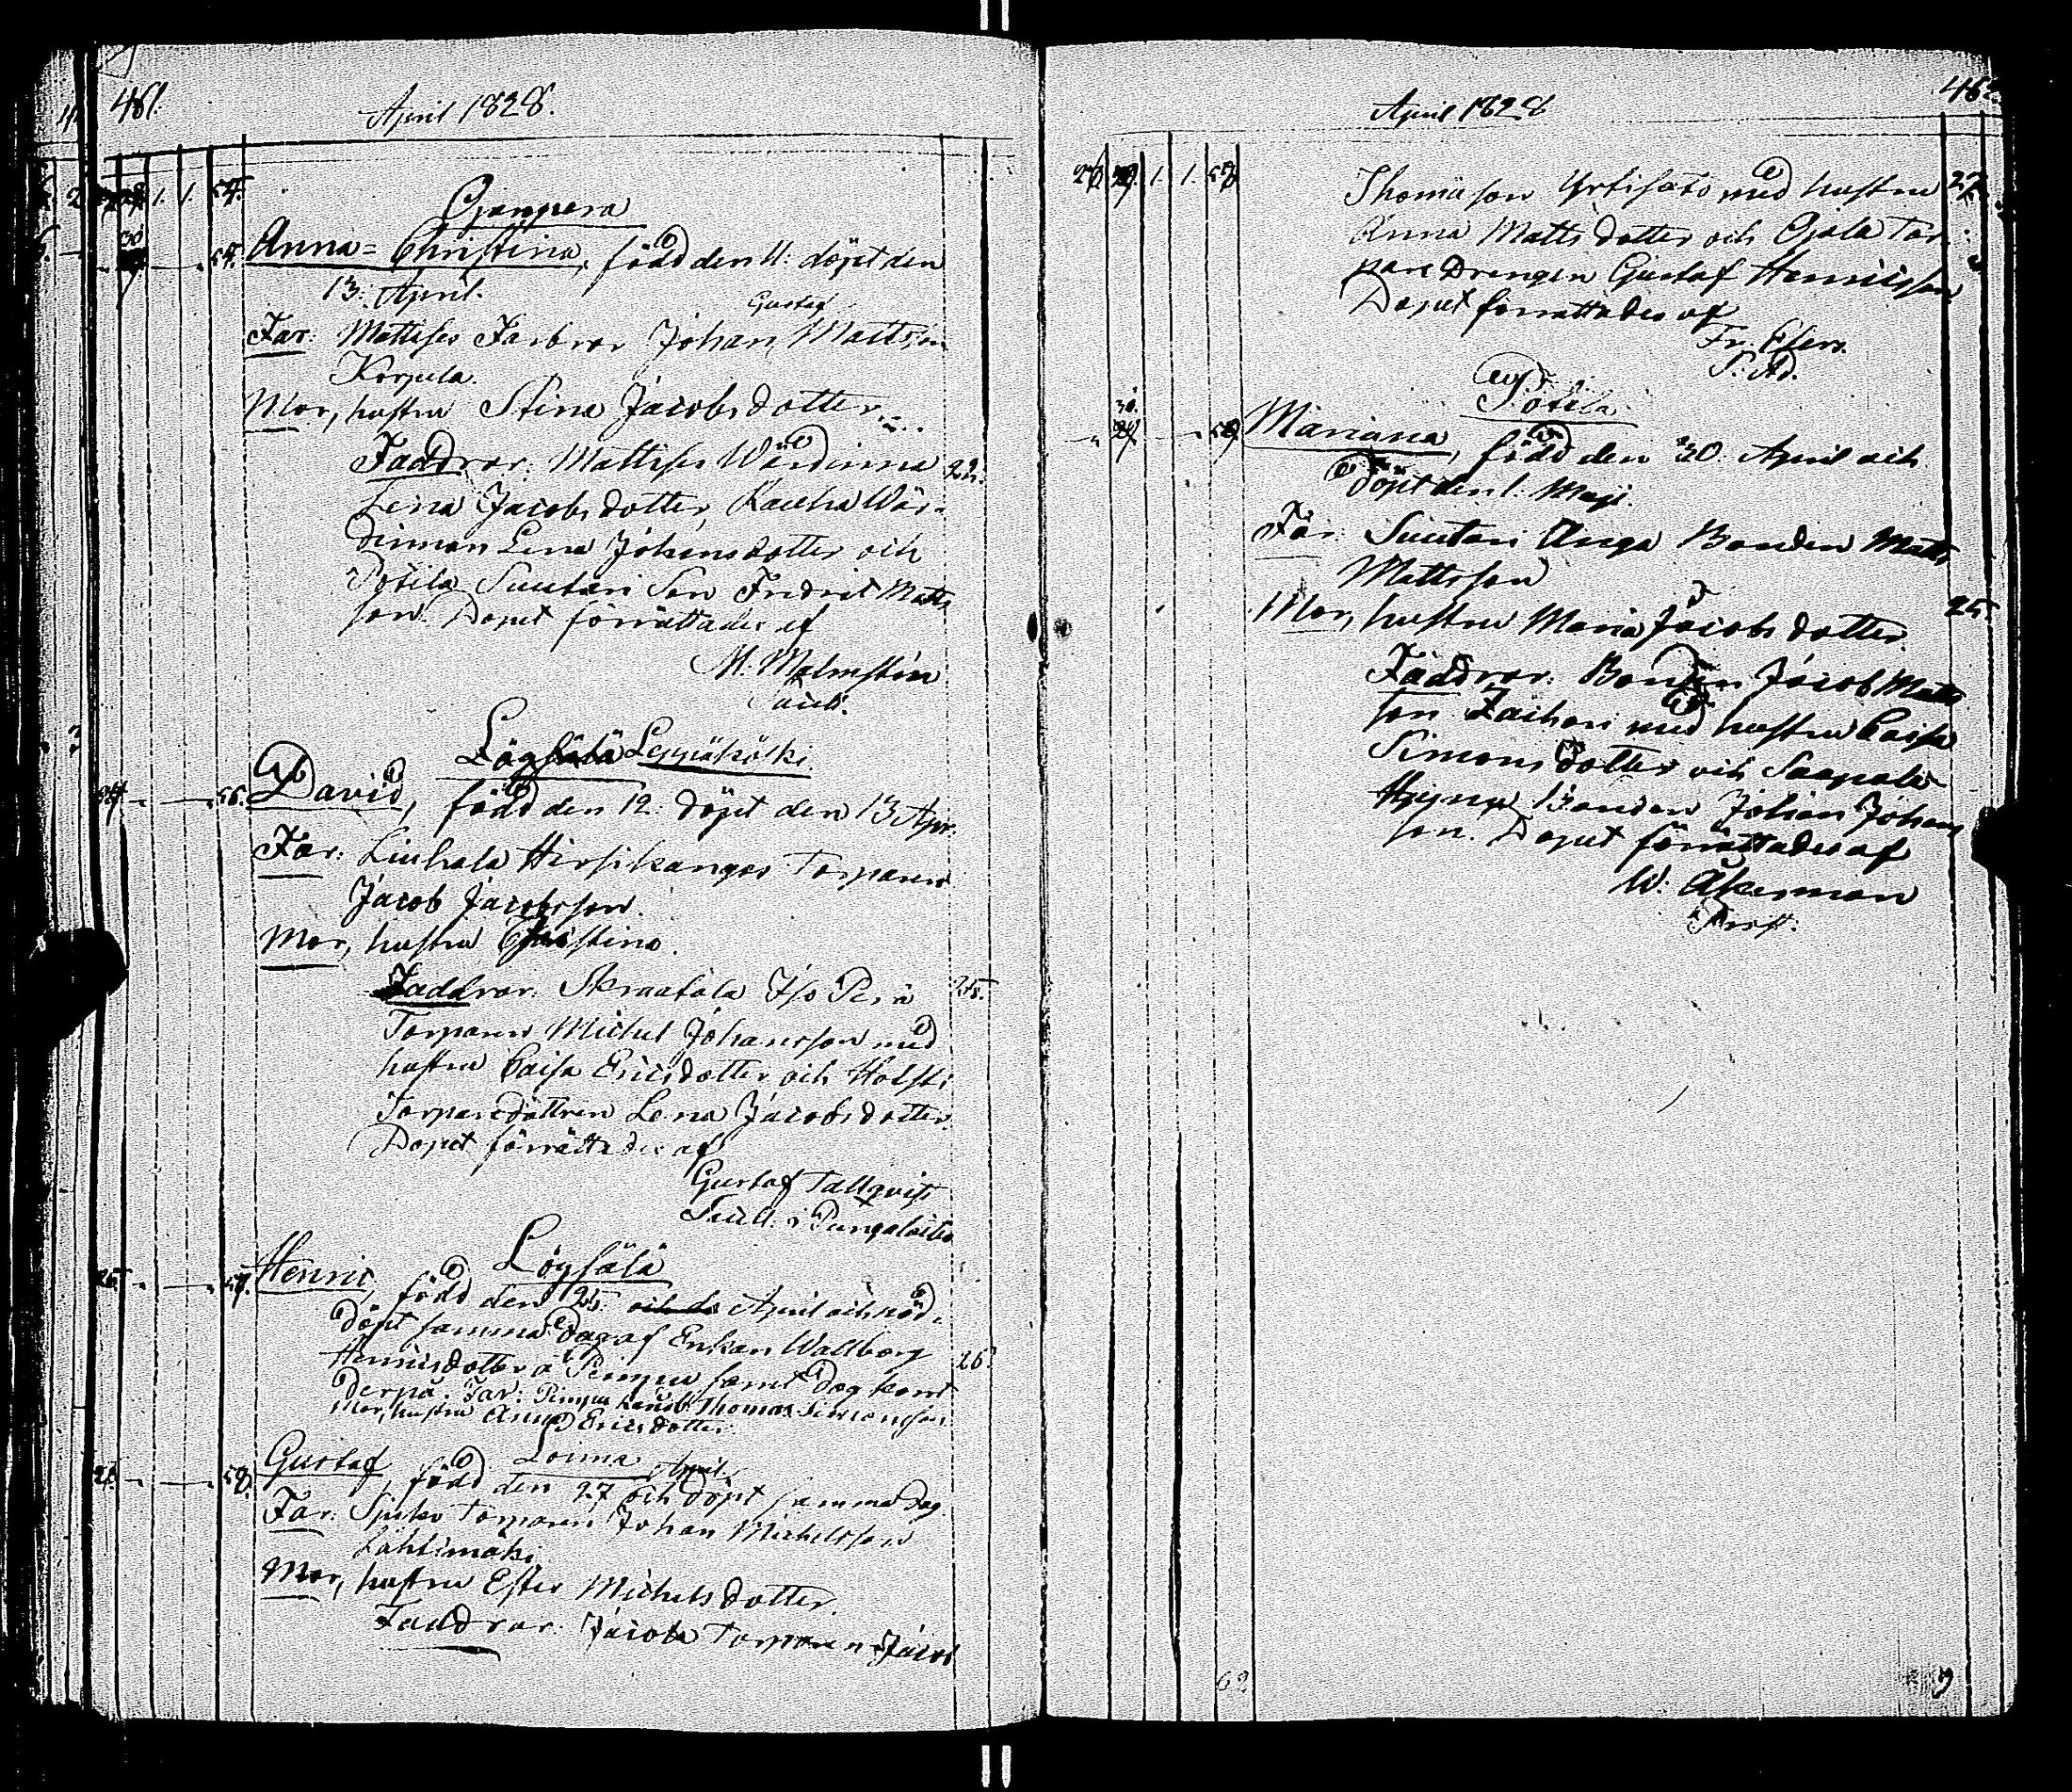 461.
April 1828.
54.
Ojanpera
55. Anna-Christina, född den 11: döpt den
13: April.
Gustaf
Far: Mattises Farbror Johan Mattsson
Korpela.
Mor, hustru Stina Jacobsdotter
Faddrar: Mattises Wärdinna 22.
Lena Jacobsdotter, Rauha Wär-
dinnan Lena Johansdotter och
Pötilä Suutari Son Fredric Matts
son. Dopet förrättades af
M. Malmsten
Löyhälä Leppäkoski
56. David, född den 12. döpt den 13 Apr.
Far: Liuhala Hirsikangas Torparen
Jacob Jacobsson.
Mor, hustru Christina.
Faddrar: Skraatala Perä 25.
Torparen Michel Johansson med
hustru Caisa Ericsdotter och Holsti
Torparedottren Lena Jacobsdotter.
Dopet förrättades af
Gustaf Tallqvist
i Pungalaitio
Löyhälä
57. Henric, född den 25. April och nöd-
döpt samma dag af Enkan Wallborg
Henricsdotter å Pimpu samt dog kort 26.
derpå. Far: Pimpu Thomas Simonsson
Mor, hustru Anna Ericsdotter.
Loima
April
58. Gustaf, född den 27 och döpt samma dag
Far: Torparen Johan Michelsson
Lähtimäki
Mor, hustru Ester Michelsdotter.
Faddrar: Torparen Jacob
April 1828
462.
Thomasson Yrtisato med hustru 27.
Anna Mattsdotter och Ojala Tor-
pare Drengen Gustaf Henricsson
Dopet förrättades af
Fr. Elers.
P. Ad.
Pötilä
30. 59 Mariana, född den 30. April och
döpt den 1. Maji.
Far: Suutari Anga Bonden Matts
Mattsson
Mor, hustru Maria Jacobsdotter. 25.
Faddrar: Bonden Jacob Matts
son med hustru Caisa
Simonsdotter och
Bonden Johan Johans
son. Dopet förrättades af
W. Åkerman
Past.